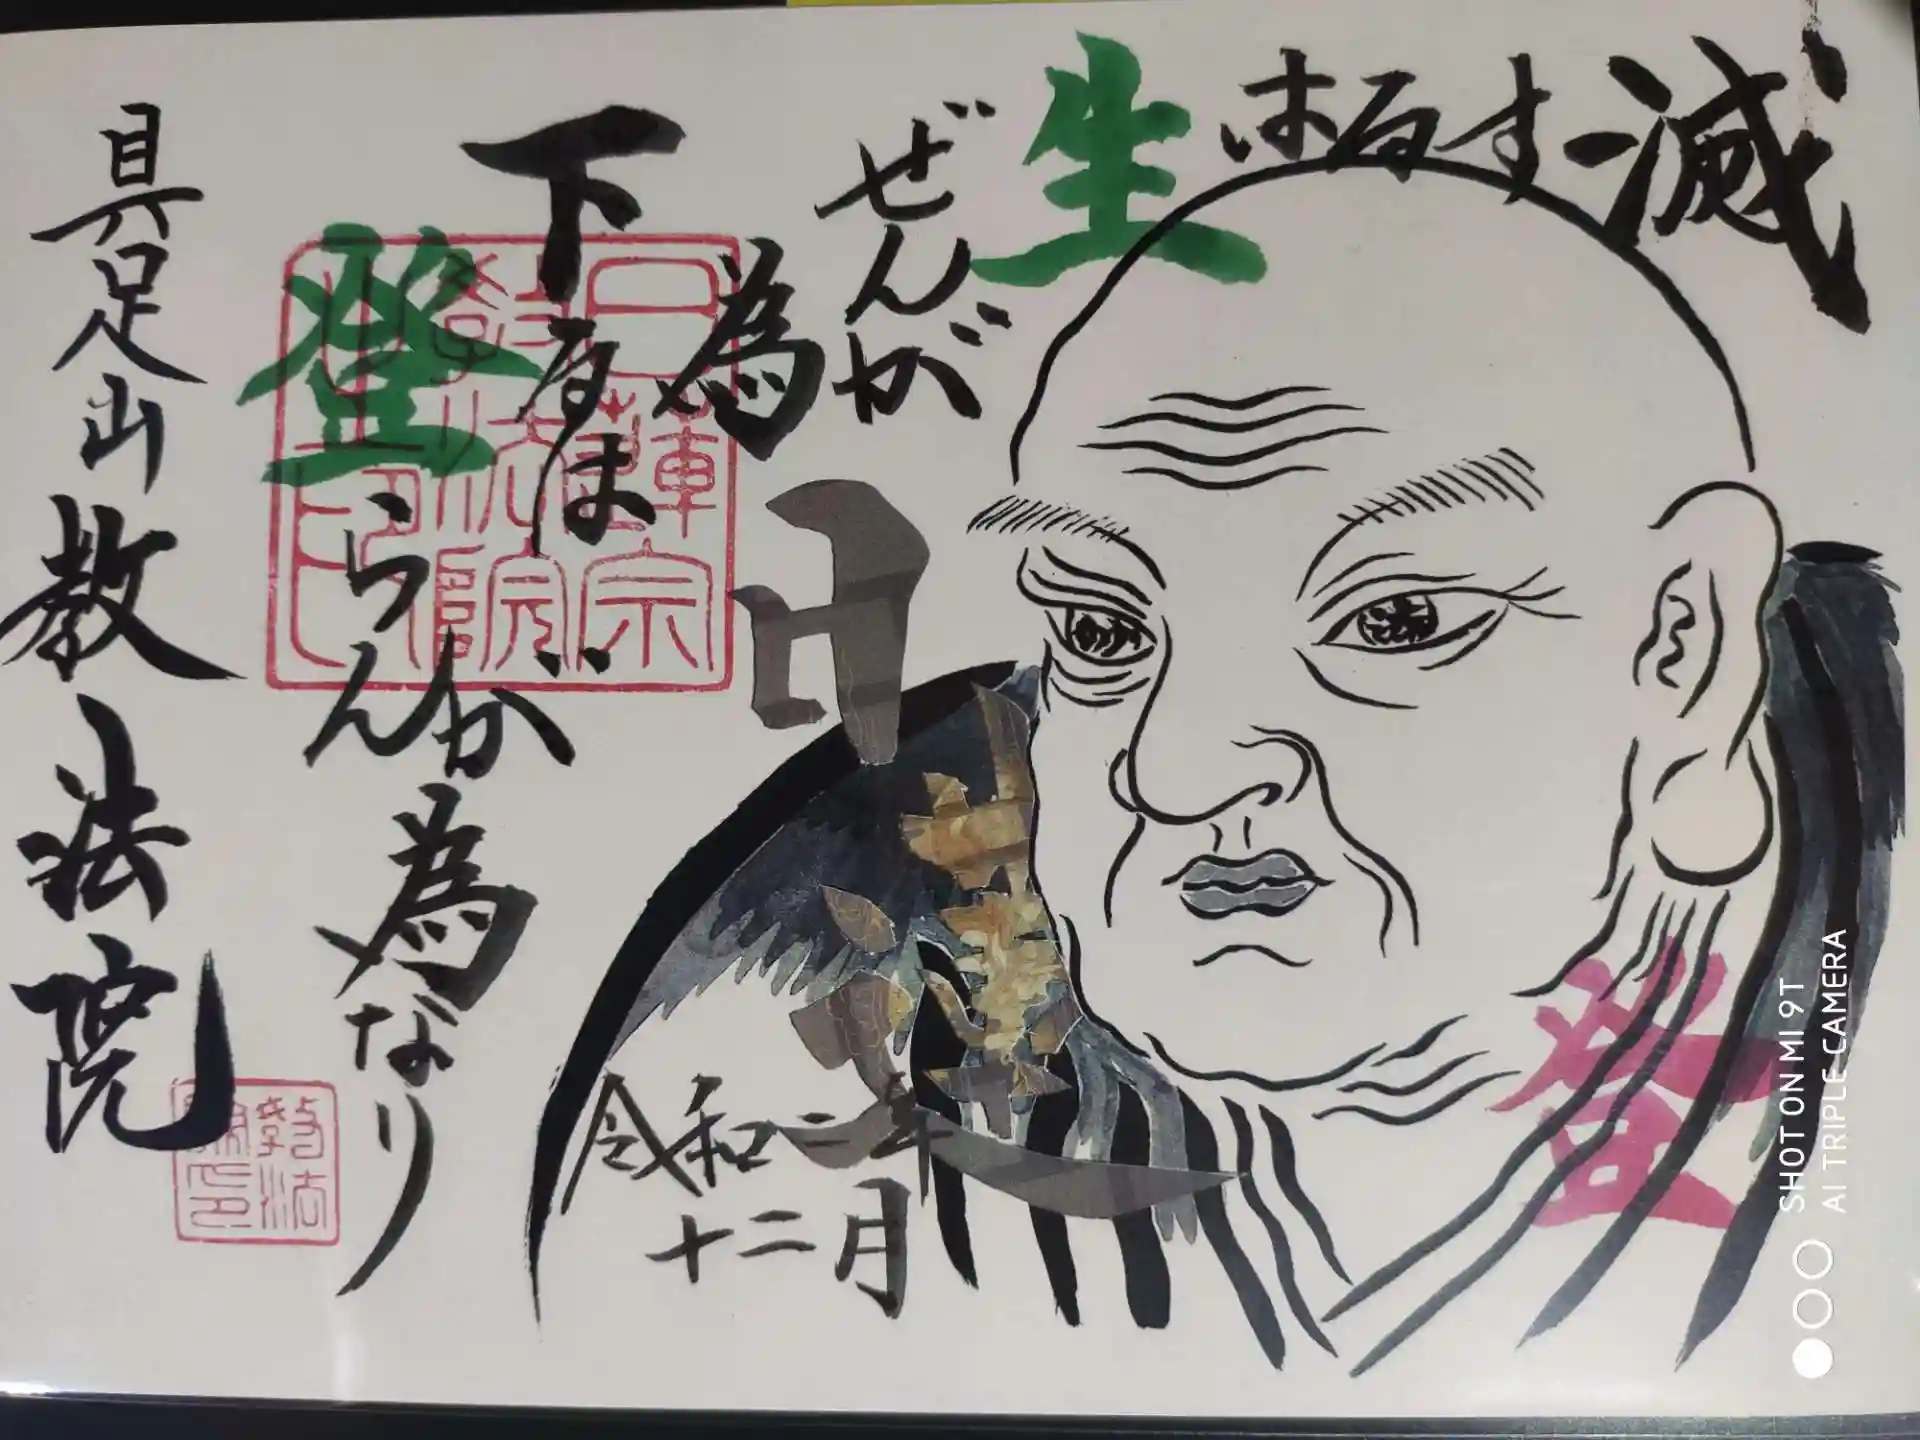 滅するは
生
ぜんが
為
下るは
登
らんが
為なり
令和二年
十二月
具足山
教法院
日蓮宗
教法院
之印
登
SHOT ON MI 9T
AI TRIPLE CAMERA